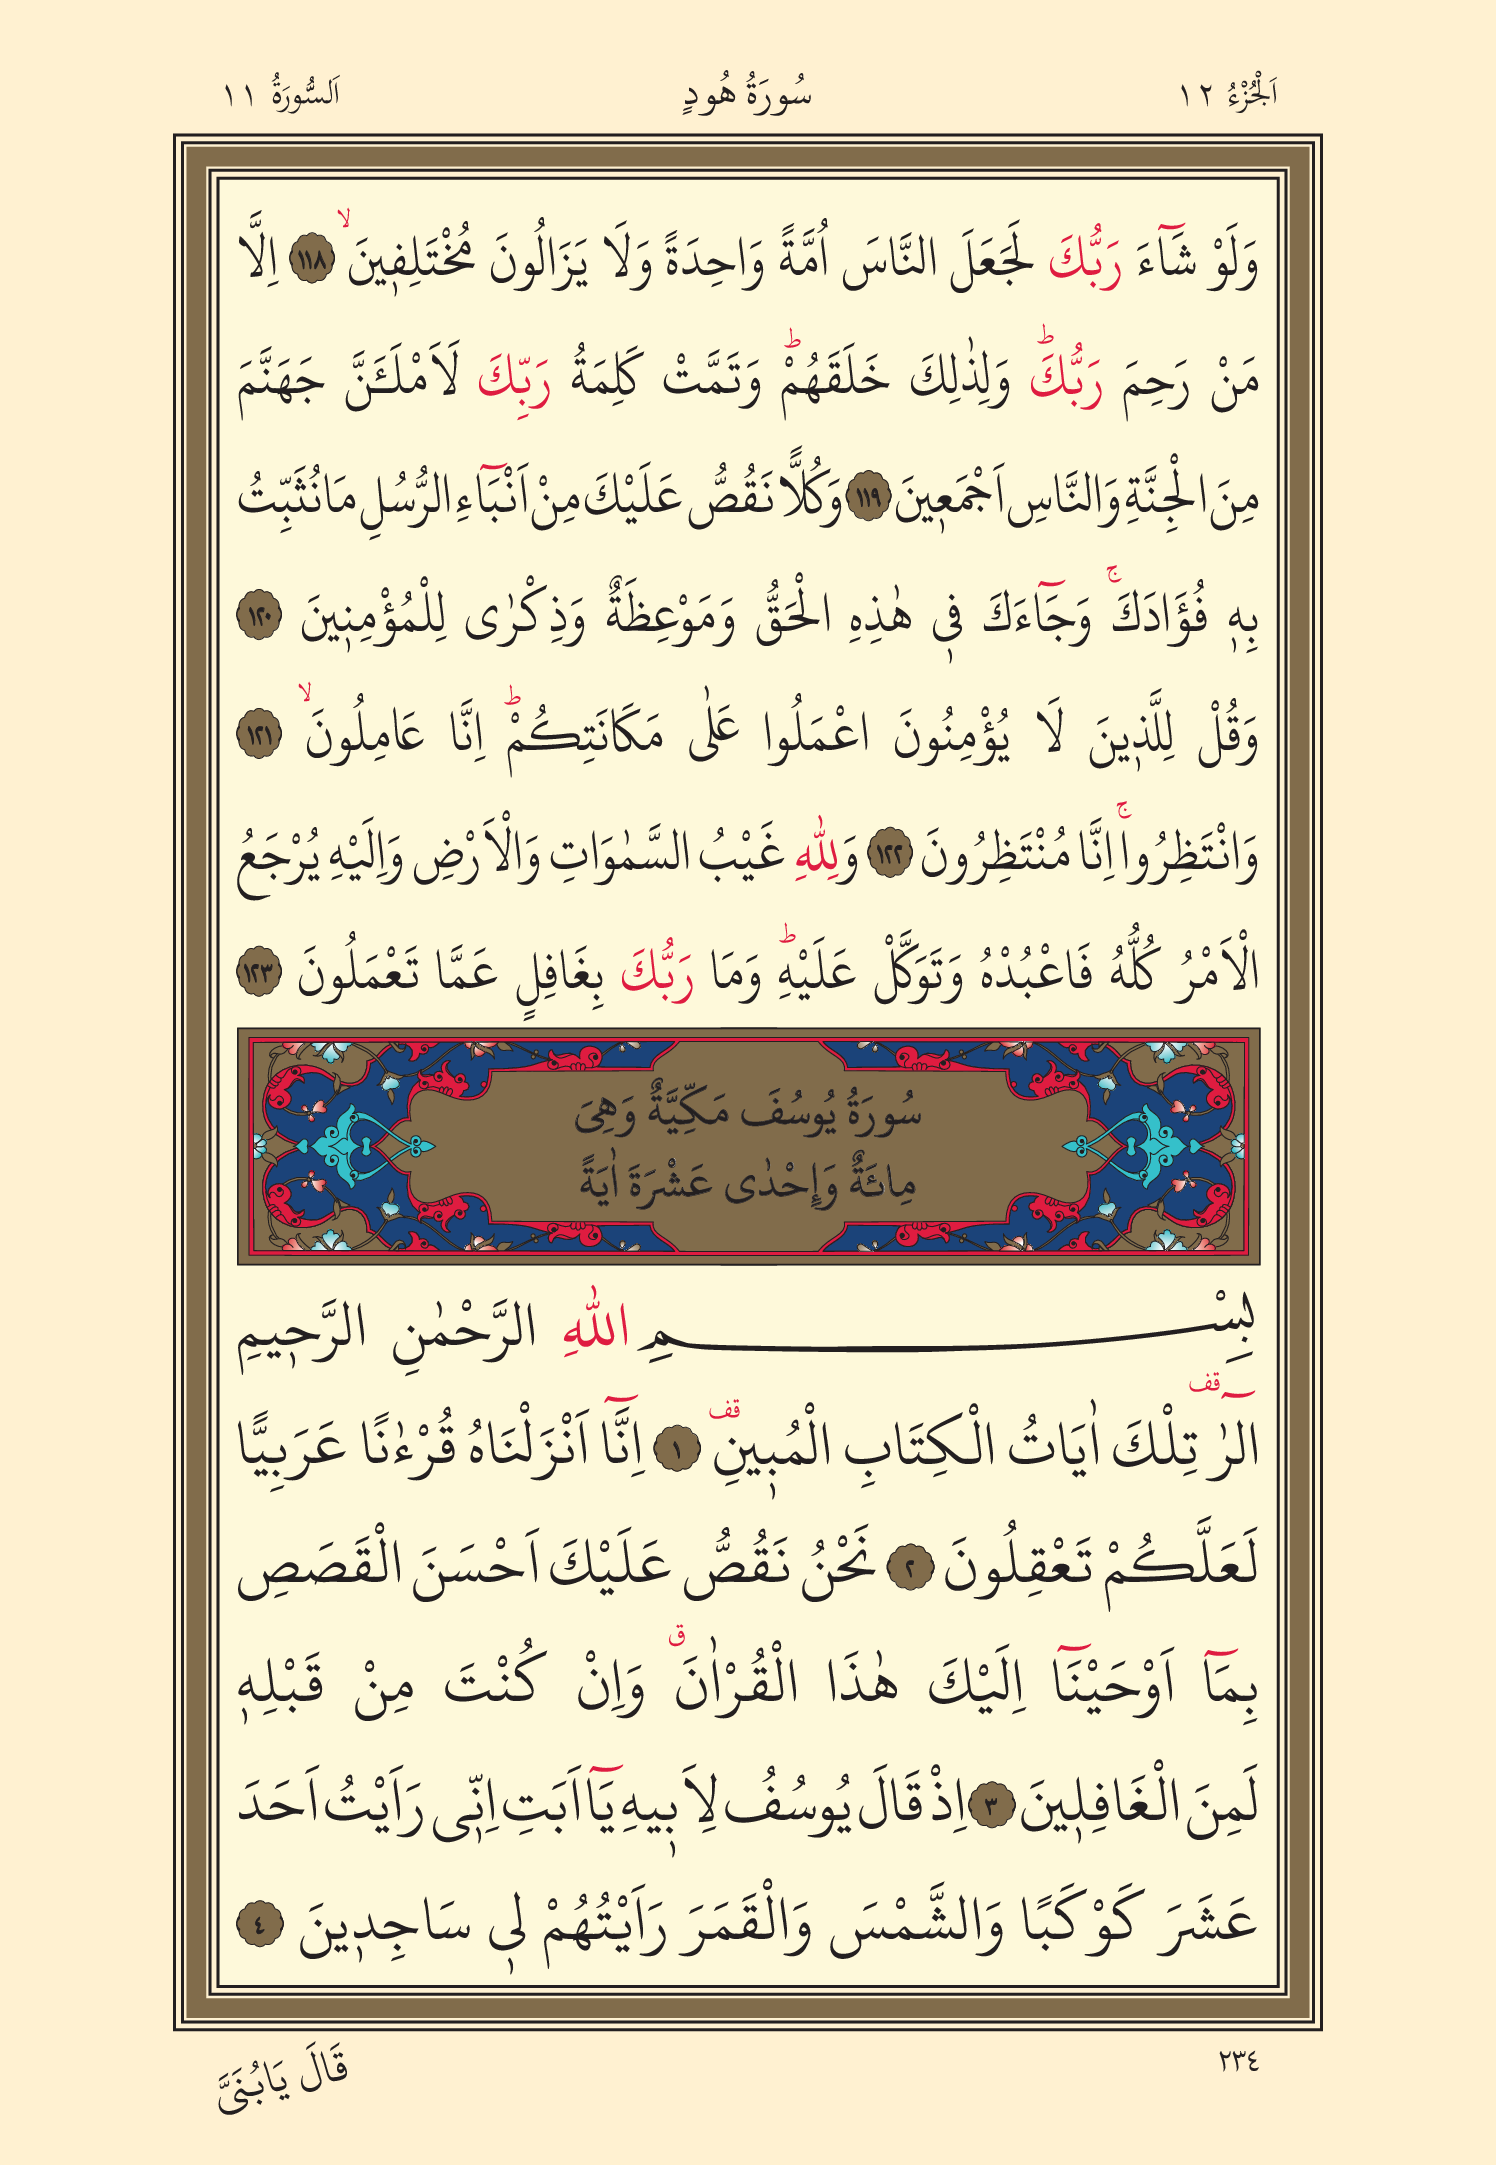 اَلْجُزْءُ ١٢ سُورَةُ هُودٍ اَلسُّورَةُ ١١
وَلَوْ شَٓاءَ رَبُّكَ لَجَعَلَ النَّاسَ اُمَّةً وَاحِدَةً وَلَا يَزَالُونَ مُخْتَلِفٖينَۙ ١١٨ اِلَّا
مَنْ رَحِمَ رَبُّكَؕ وَلِذٰلِكَ خَلَقَهُمْؕ وَتَمَّتْ كَلِمَةُ رَبِّكَ لَاَمْلَـَٔنَّ جَهَنَّمَ
مِنَ الْجِنَّةِ وَالنَّاسِ اَجْمَعٖينَ ١١٩ وَكُلًّا نَقُصُّ عَلَيْكَ مِنْ اَنْبَٓاءِ الرُّسُلِ مَا نُثَبِّتُ
بِهٖ فُؤَادَكَۚ وَجَٓاءَكَ فٖى هٰذِهِ الْحَقُّ وَمَوْعِظَةٌ وَذِكْرٰى لِلْمُؤْمِنٖينَ ١٢٠
وَقُلْ لِلَّذٖينَ لَا يُؤْمِنُونَ اعْمَلُوا عَلٰى مَكَانَتِكُمْؕ اِنَّا عَامِلُونَۙ ١٢١
وَانْتَظِرُواۚ اِنَّا مُنْتَظِرُونَ ١٢٢ وَلِلّٰهِ غَيْبُ السَّمٰوَاتِ وَالْاَرْضِ وَاِلَيْهِ يُرْجَعُ
الْاَمْرُ كُلُّهُ فَاعْبُدْهُ وَتَوَكَّلْ عَلَيْهِؕ وَمَا رَبُّكَ بِغَافِلٍ عَمَّا تَعْمَلُونَ ١٢٣
سُورَةُ يُوسُفَ مَكِّيَّةٌ وَهِىَ
مِائَةٌ وَإِحْدٰى عَشْرَةَ اٰيَةً
بِسْمِ اللّٰهِ الرَّحْمٰنِ الرَّحٖيمِ
الٓرٰ قف تِلْكَ اٰيَاتُ الْكِتَابِ الْمُبٖينِ قف ١ اِنَّٓا اَنْزَلْنَاهُ قُرْءٰنًا عَرَبِيًّا
لَعَلَّكُمْ تَعْقِلُونَ ٢ نَحْنُ نَقُصُّ عَلَيْكَ اَحْسَنَ الْقَصَصِ
بِمَٓا اَوْحَيْنَٓا اِلَيْكَ هٰذَا الْقُرْاٰنَ ق وَاِنْ كُنْتَ مِنْ قَبْلِهٖ
لَمِنَ الْغَافِلٖينَ ٣ اِذْ قَالَ يُوسُفُ لِاَبٖيهِ يَٓا اَبَتِ اِنّٖى رَاَيْتُ اَحَدَ
عَشَرَ كَوْكَبًا وَالشَّمْسَ وَالْقَمَرَ رَاَيْتُهُمْ لٖى سَاجِدٖينَ ٤
٢٣٤ قَالَ يَابُنَىَّ